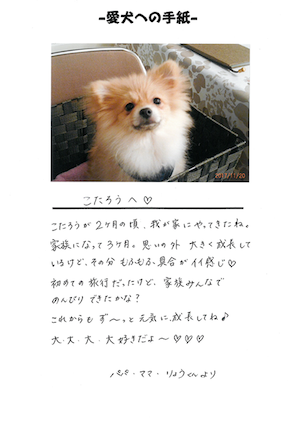 -愛犬への手紙-
2017/11/20
こたろうへ♡
こたろうが2ヶ月の頃、我が家にやってきたね。
家族になって3ヶ月。思いの外 大きく成長して
いるけど、その分 もふもふ具合がイイ感じ♡
初めての旅行だったけど、家族みんなで
のんびりできたかな?
これからも ず〜っと元気に成長してね♪
大・大・大・大好きだよ〜♡♡♡
パパ・ママ・りょうくんより